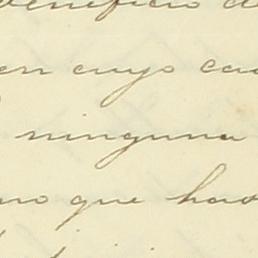 beneficio d
en cuyo ca
ninguna
no que has